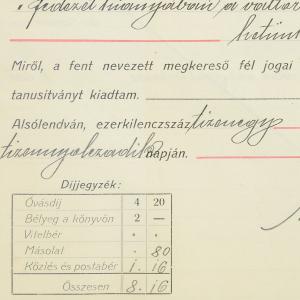 fedezet hiányában a váltó
hetün
Miről, a fent nevezett megkereső fél jogai
tanusítványt kiadtam.
Alsólendván, ezerkilenczszáz tizenegy
tizennyolczadik napján.
Díjjegyzék:
Óvásdíj 4 20
Bélyeg a könyvön 2 —
Vitelbér . .
Másolat . 80
Közlés és postabér 1. 16
Összesen 8. 16